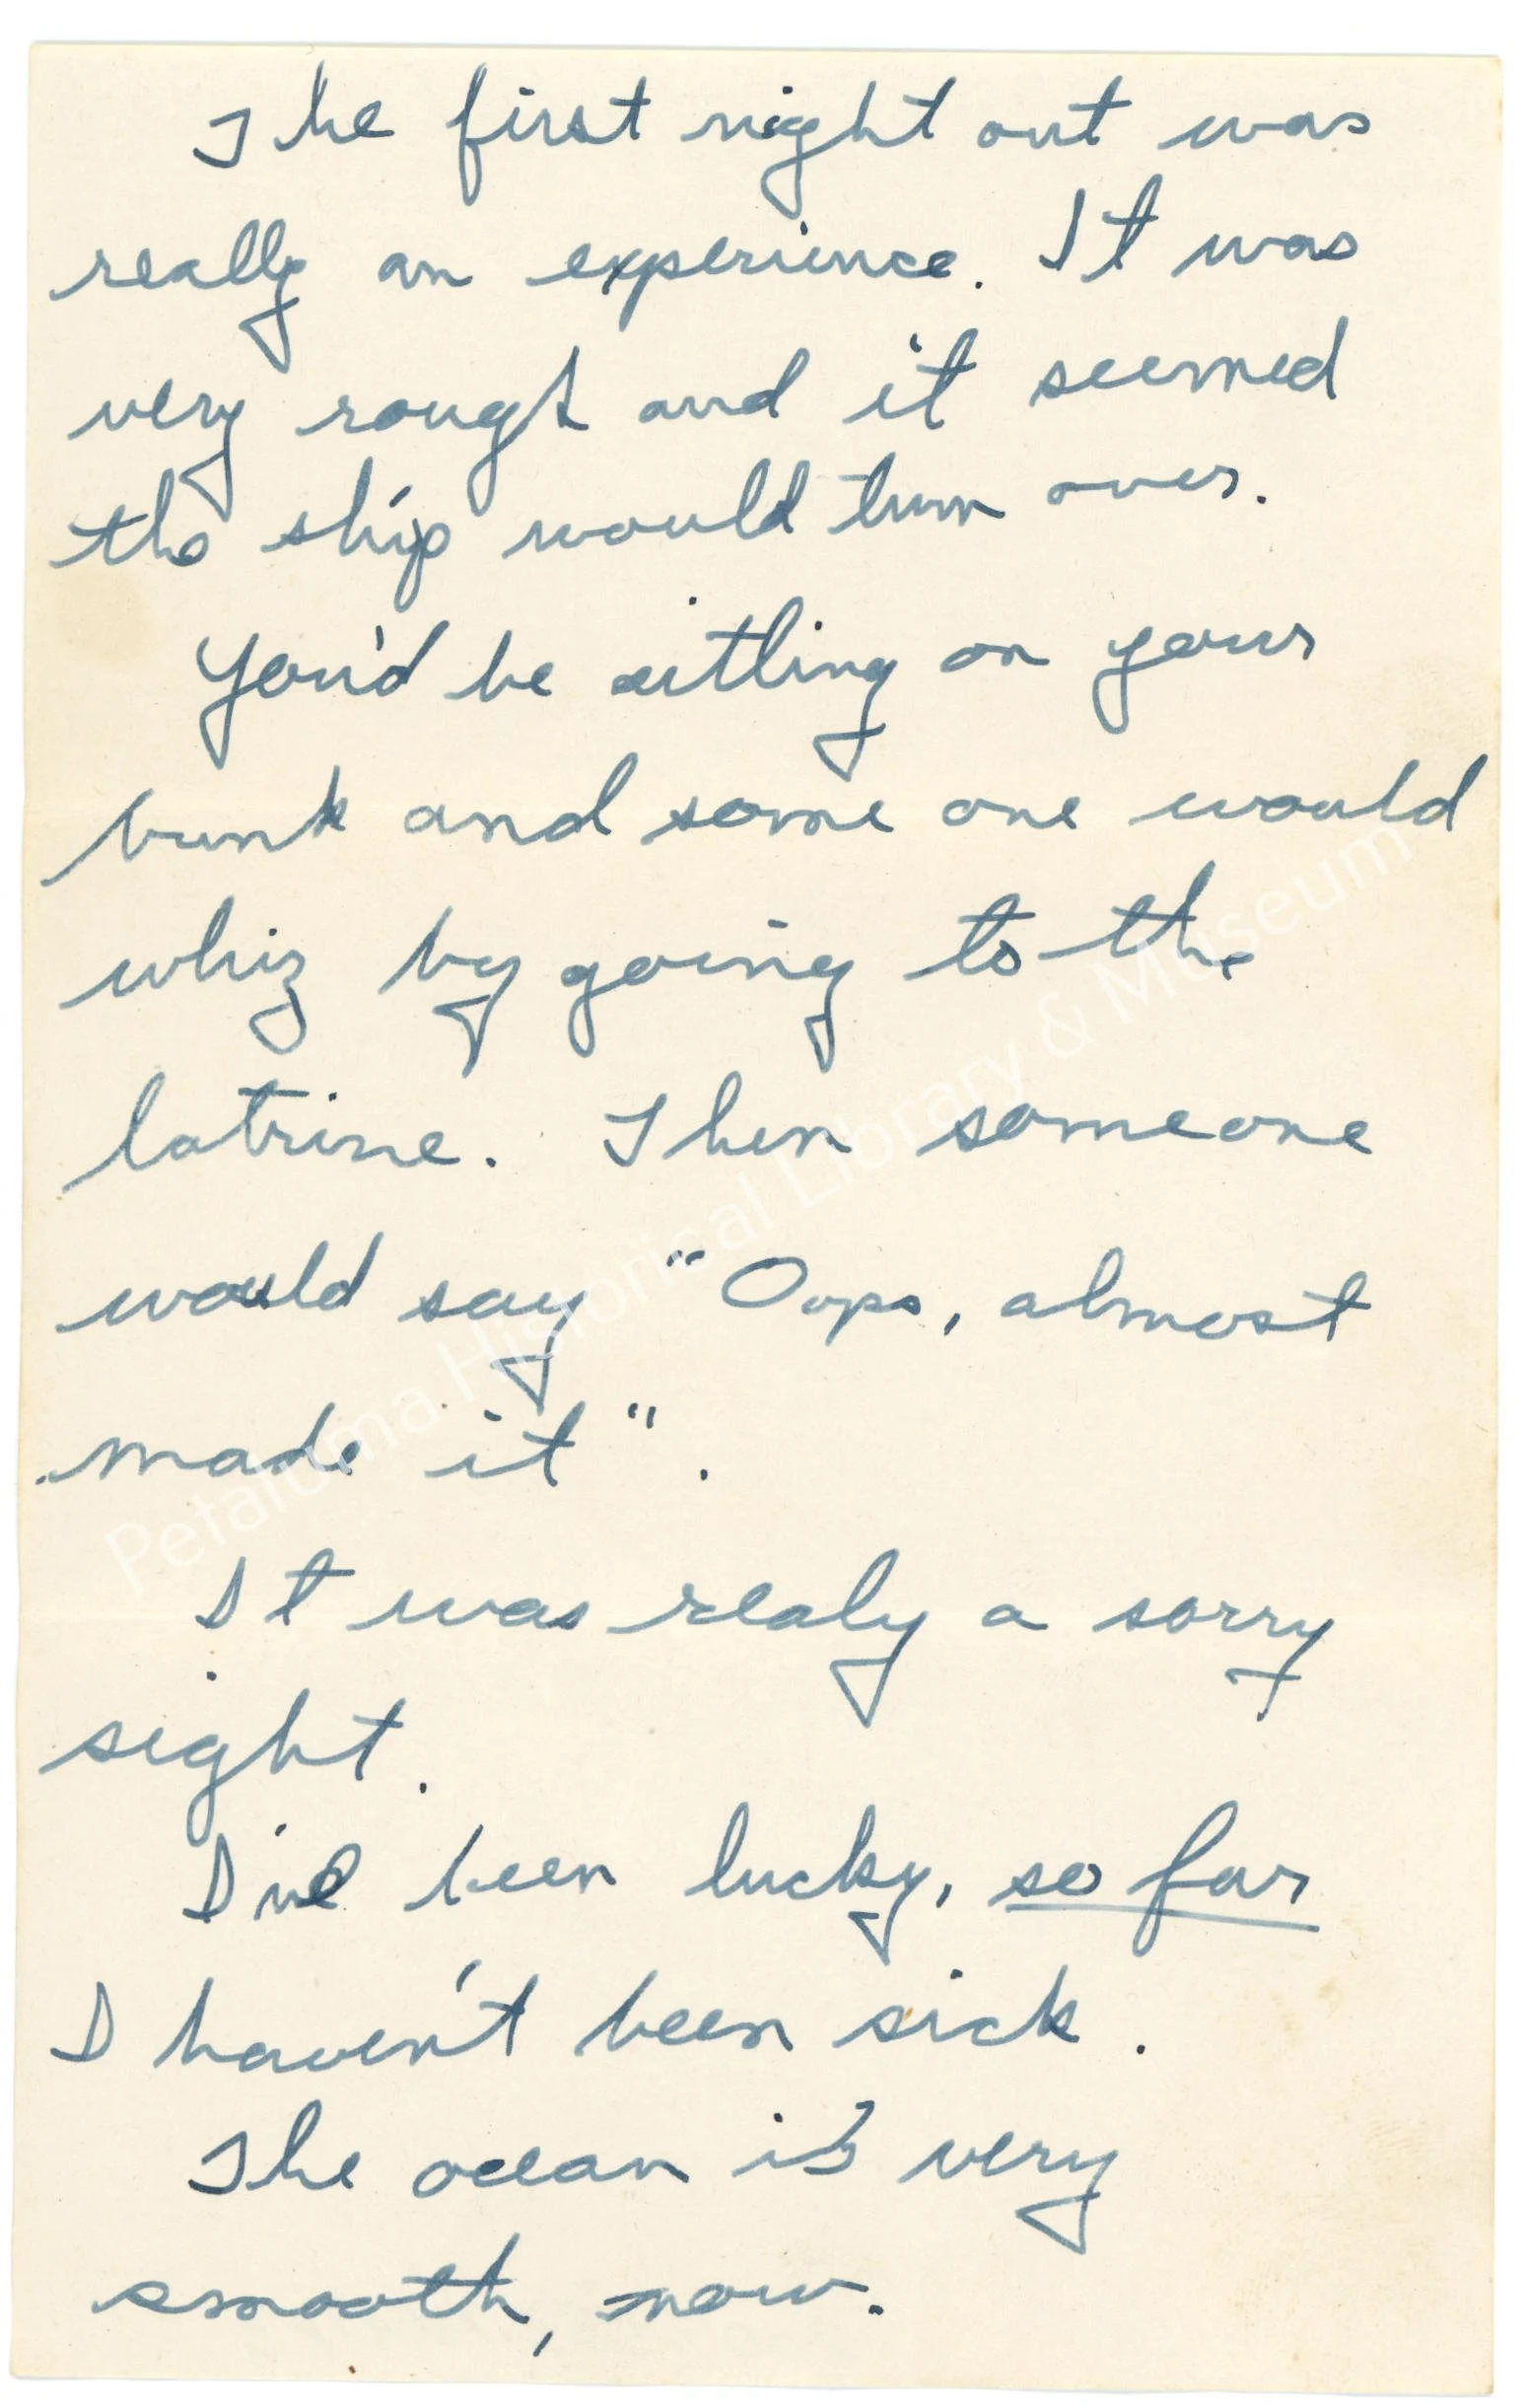 The first night out was
really an experience. It was
very rough and it seemed
the ship would turn over.
You'd be sitting on your
bunk and some one would
whiz by going to the
latrine. Then someone
would say "Oops, almost
made it".
It was realy a sorry
sight.
I've been lucky, so far
I haven't been sick.
The ocean is very
smooth, now.
Petaluma Historical Library & Museum